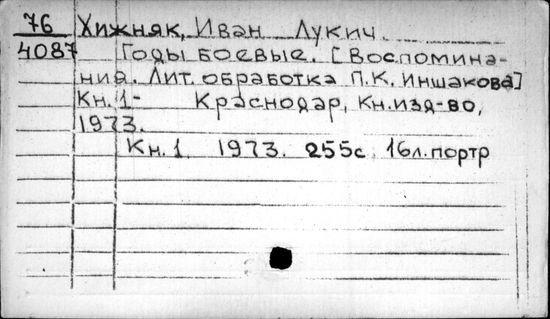 76 Хижняк, Иван Лукич.
4087 Годы боевые. [Воспомина-
ния. Лит. обработка П.К. Иншакова]
Кн. 1- Краснодар, Кн.изд-во,
1973.
Кн. 1. 1973. 255с. 16л.портр